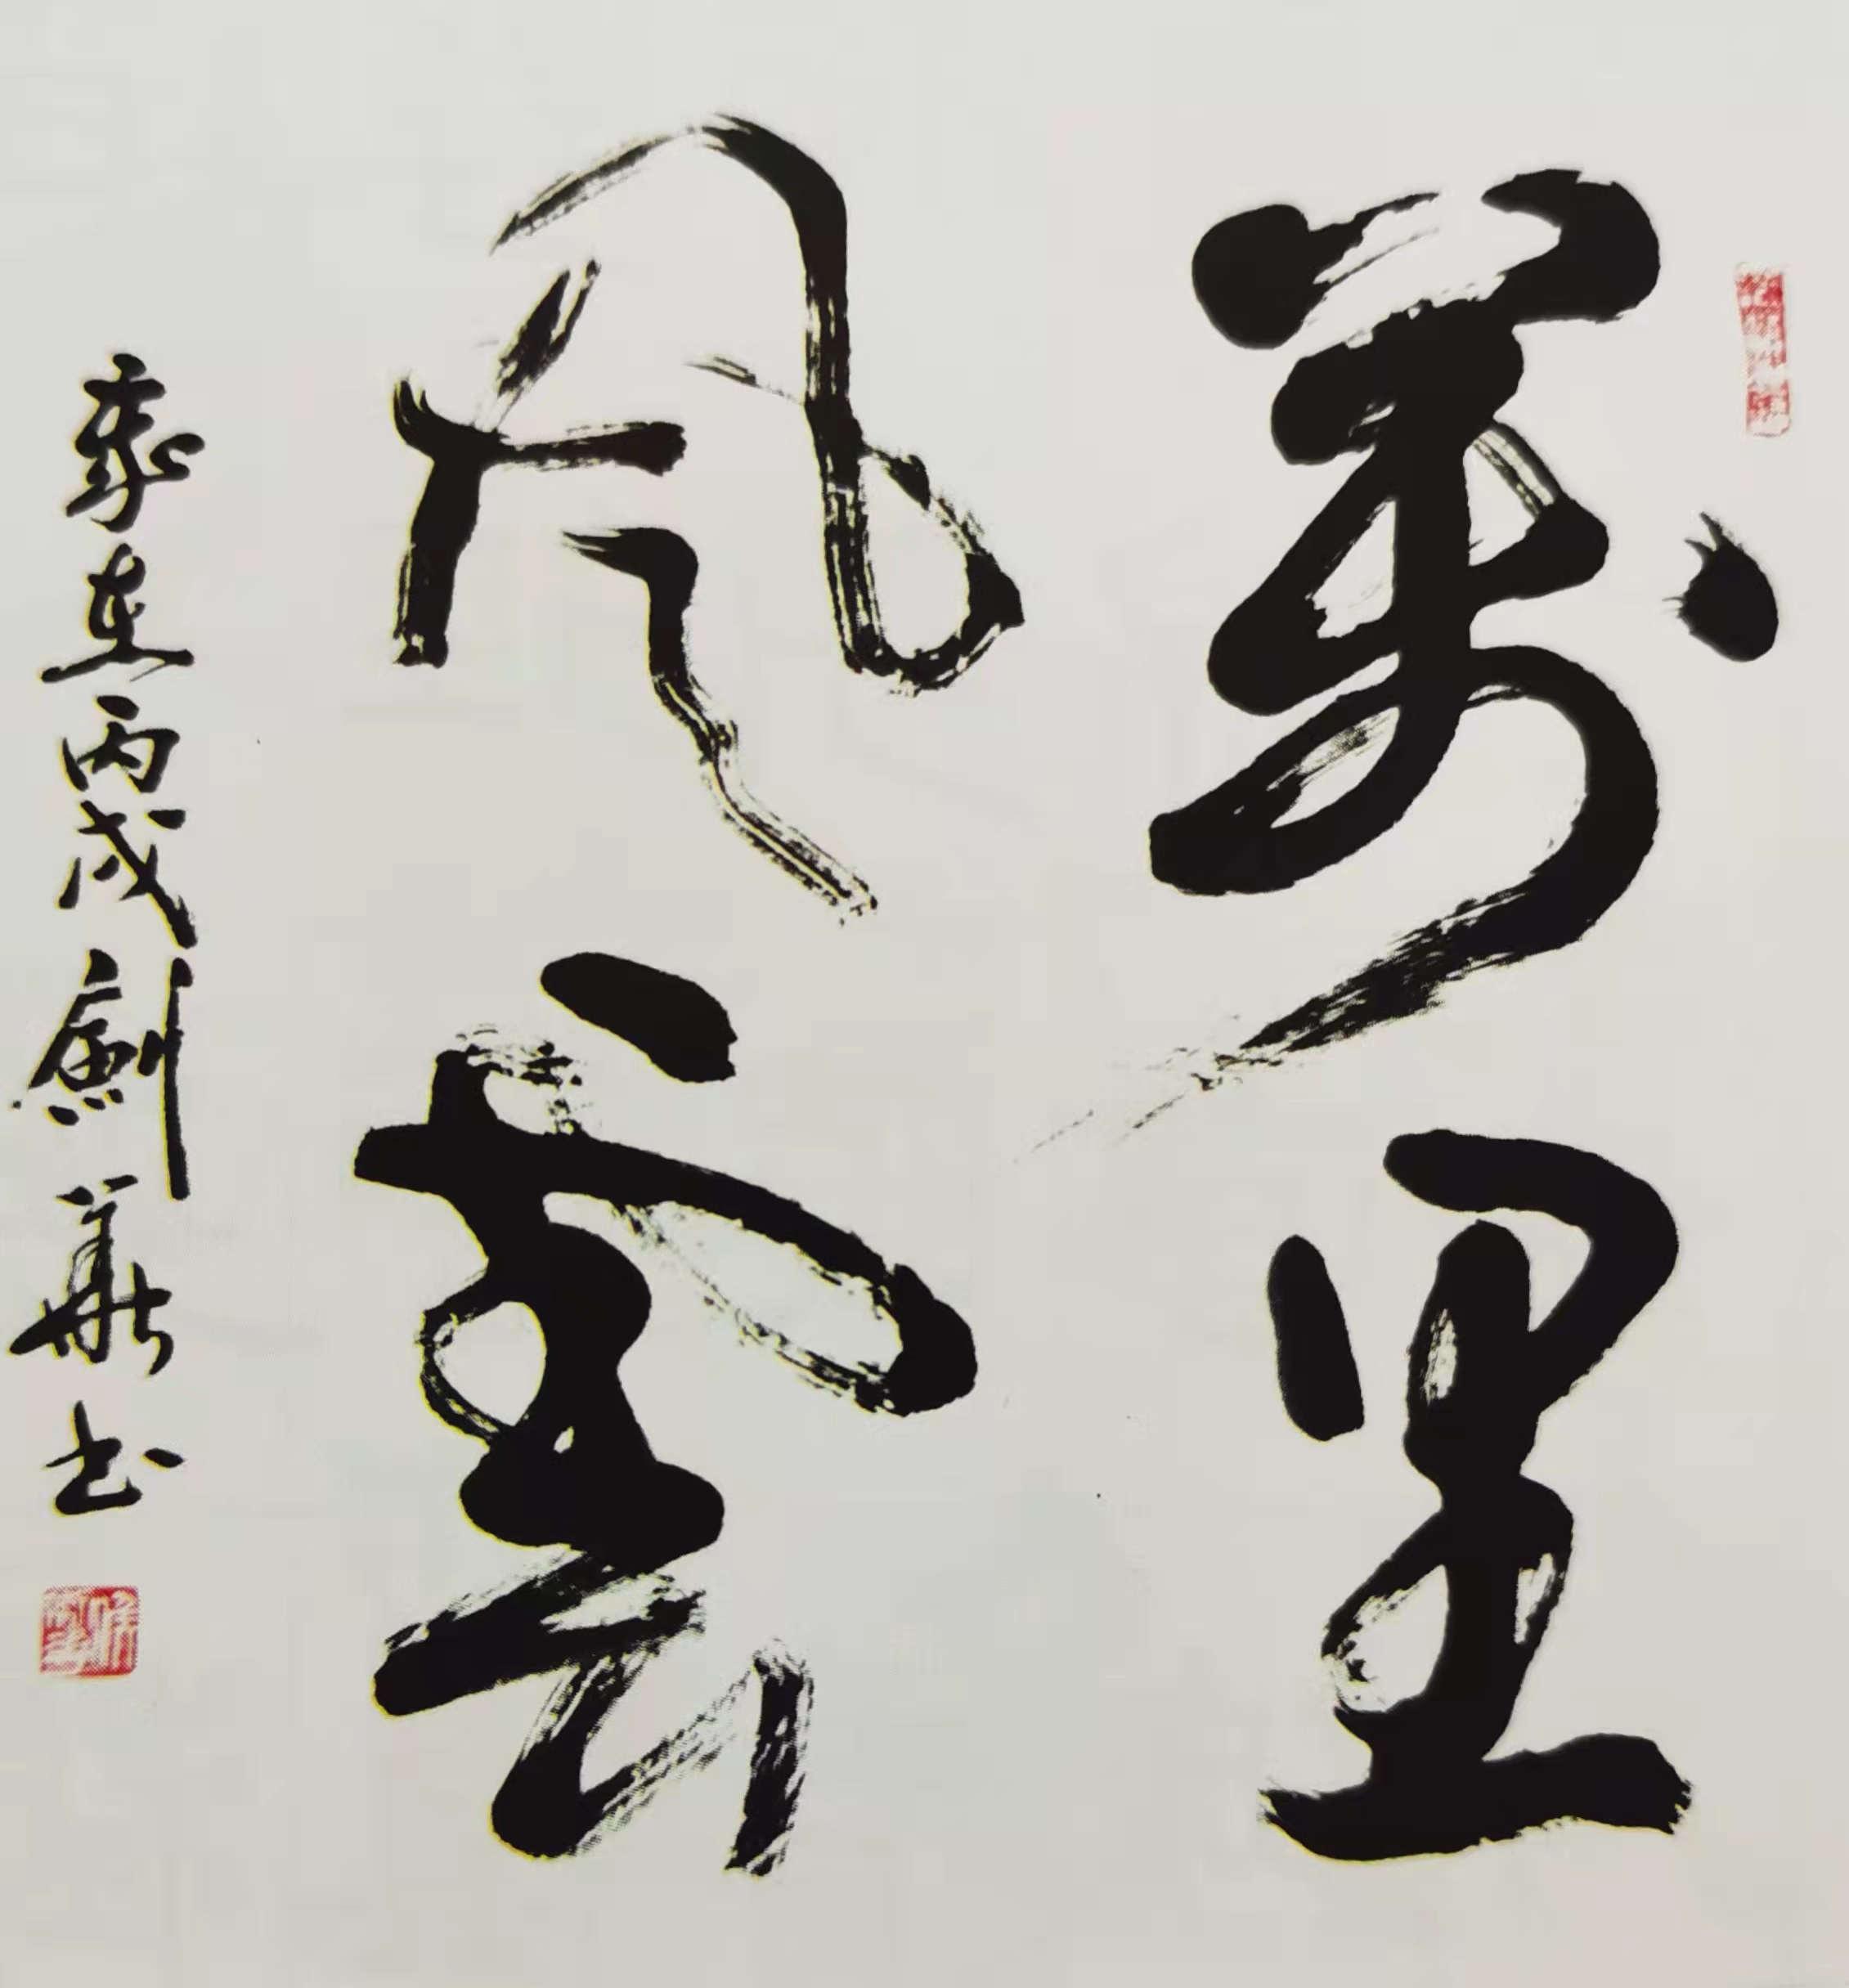 萬里
風雲
歲在丙戌劍華书